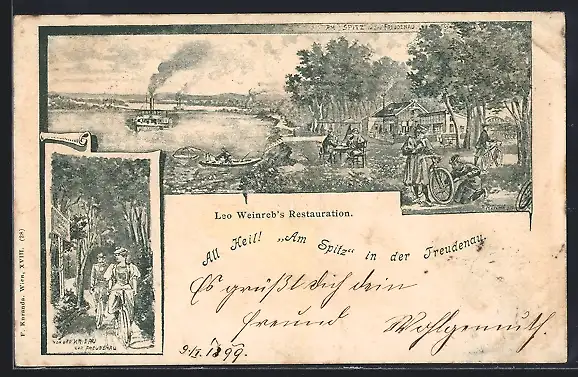 AM SPITZ IN DER FREUDENAU
Leo Weinreb's Restauration.
All Heil! „Am Spitz" in der Freudenau.
Es grüßt dich dein
freund Wohlgemuth.
1899.
VON DER KRIEAU
ZUR FREUDENAU
F. Koranda, Wien, XVIII. (28)